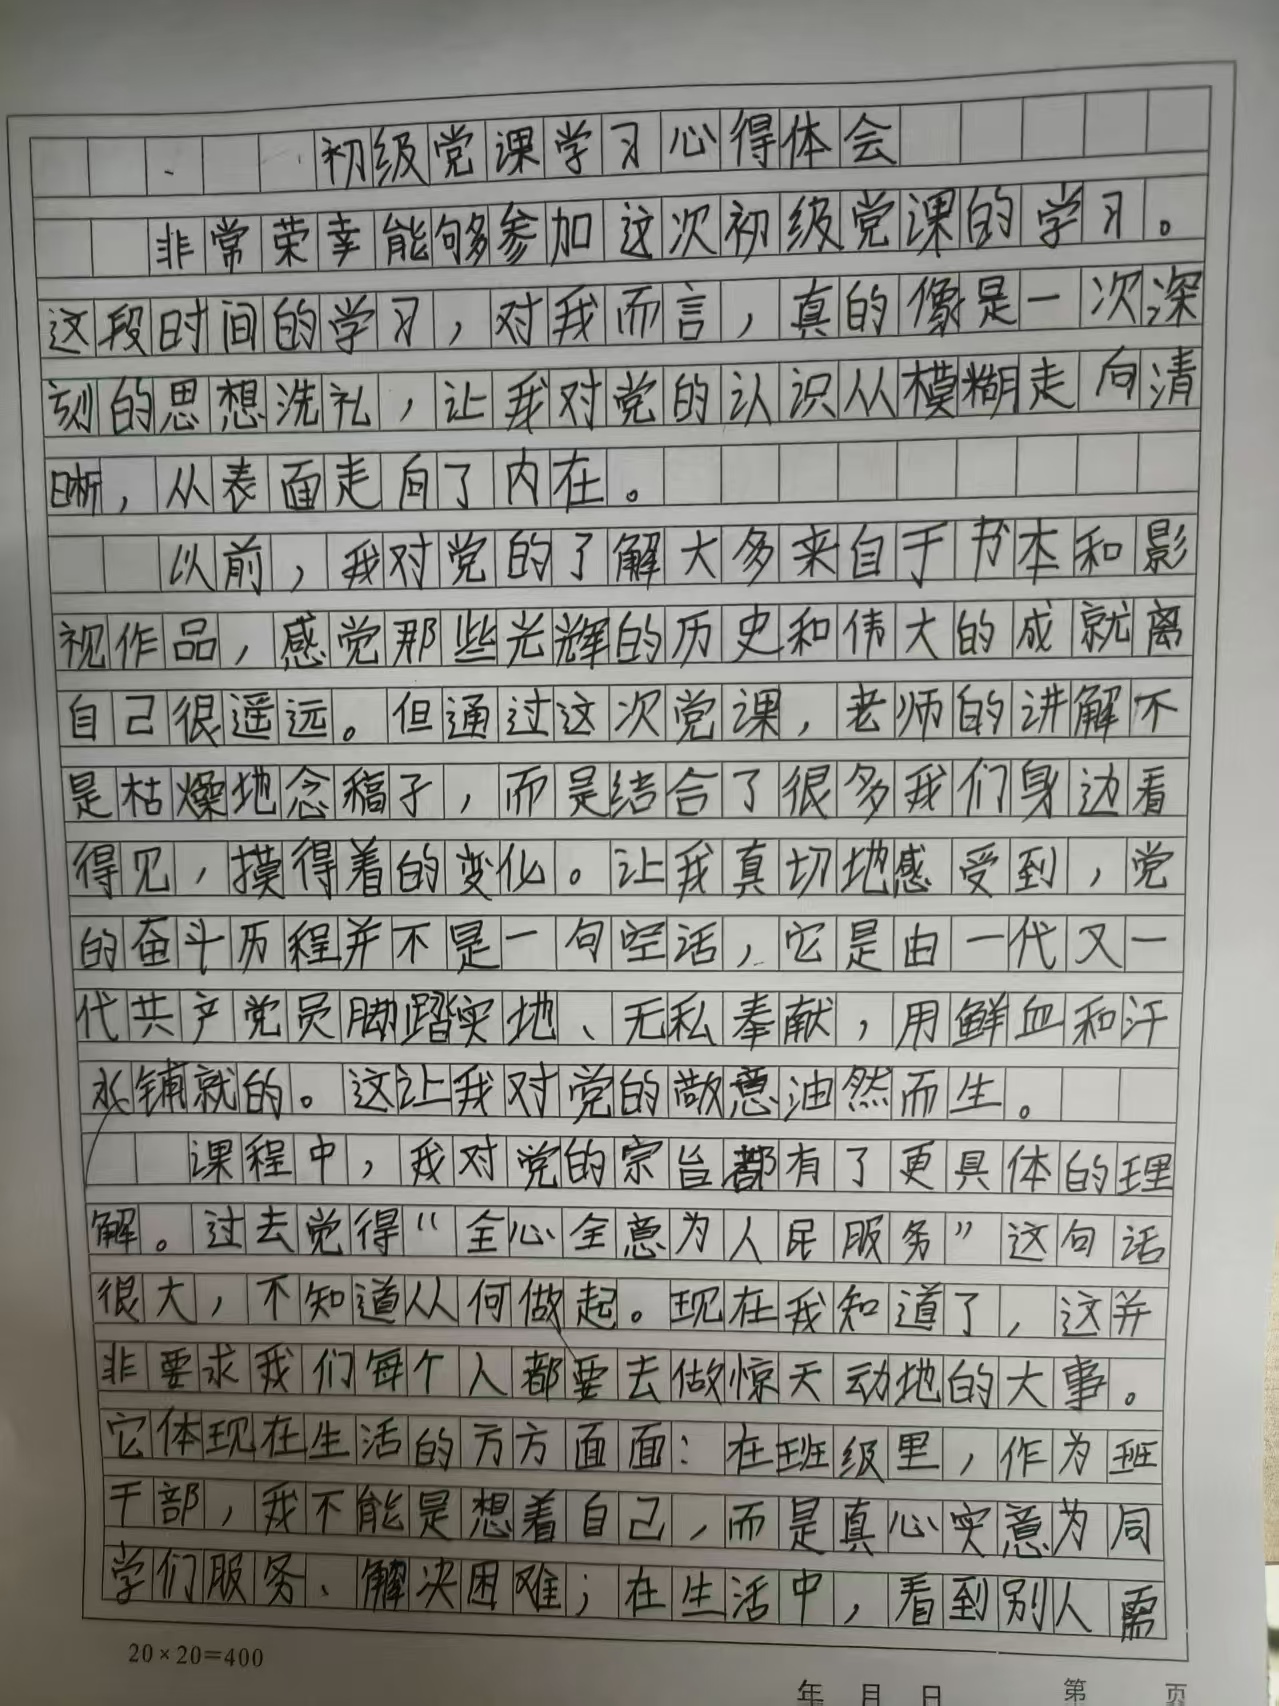 初级党课学习心得体会
非常荣幸能够参加这次初级党课的学习。
这段时间的学习，对我而言，真的像是一次深
刻的思想洗礼，让我对党的认识从模糊走向清
晰，从表面走向了内在。
以前，我对党的了解大多来自于书本和影
视作品，感觉那些光辉的历史和伟大的成就离
自己很遥远。但通过这次党课，老师的讲解不
是枯燥地念稿子，而是结合了很多我们身边看
得见，摸得着的变化。让我真切地感受到，党
的奋斗历程并不是一句空话，它是由一代又一
代共产党员脚踏实地、无私奉献，用鲜血和汗
水铺就的。这让我对党的敬意油然而生。
课程中，我对党的宗旨都有了更具体的理
解。过去觉得“全心全意为人民服务”这句话
很大，不知道从何做起。现在我知道了，这并
非要求我们每个人都要去做惊天动地的大事。
它体现在生活的方方面面：在班级里，作为班
干部，我不能是想着自己，而是真心实意为同
学们服务、解决困难；在生活中，看到别人需
20×20=400
年 月 日 第 页